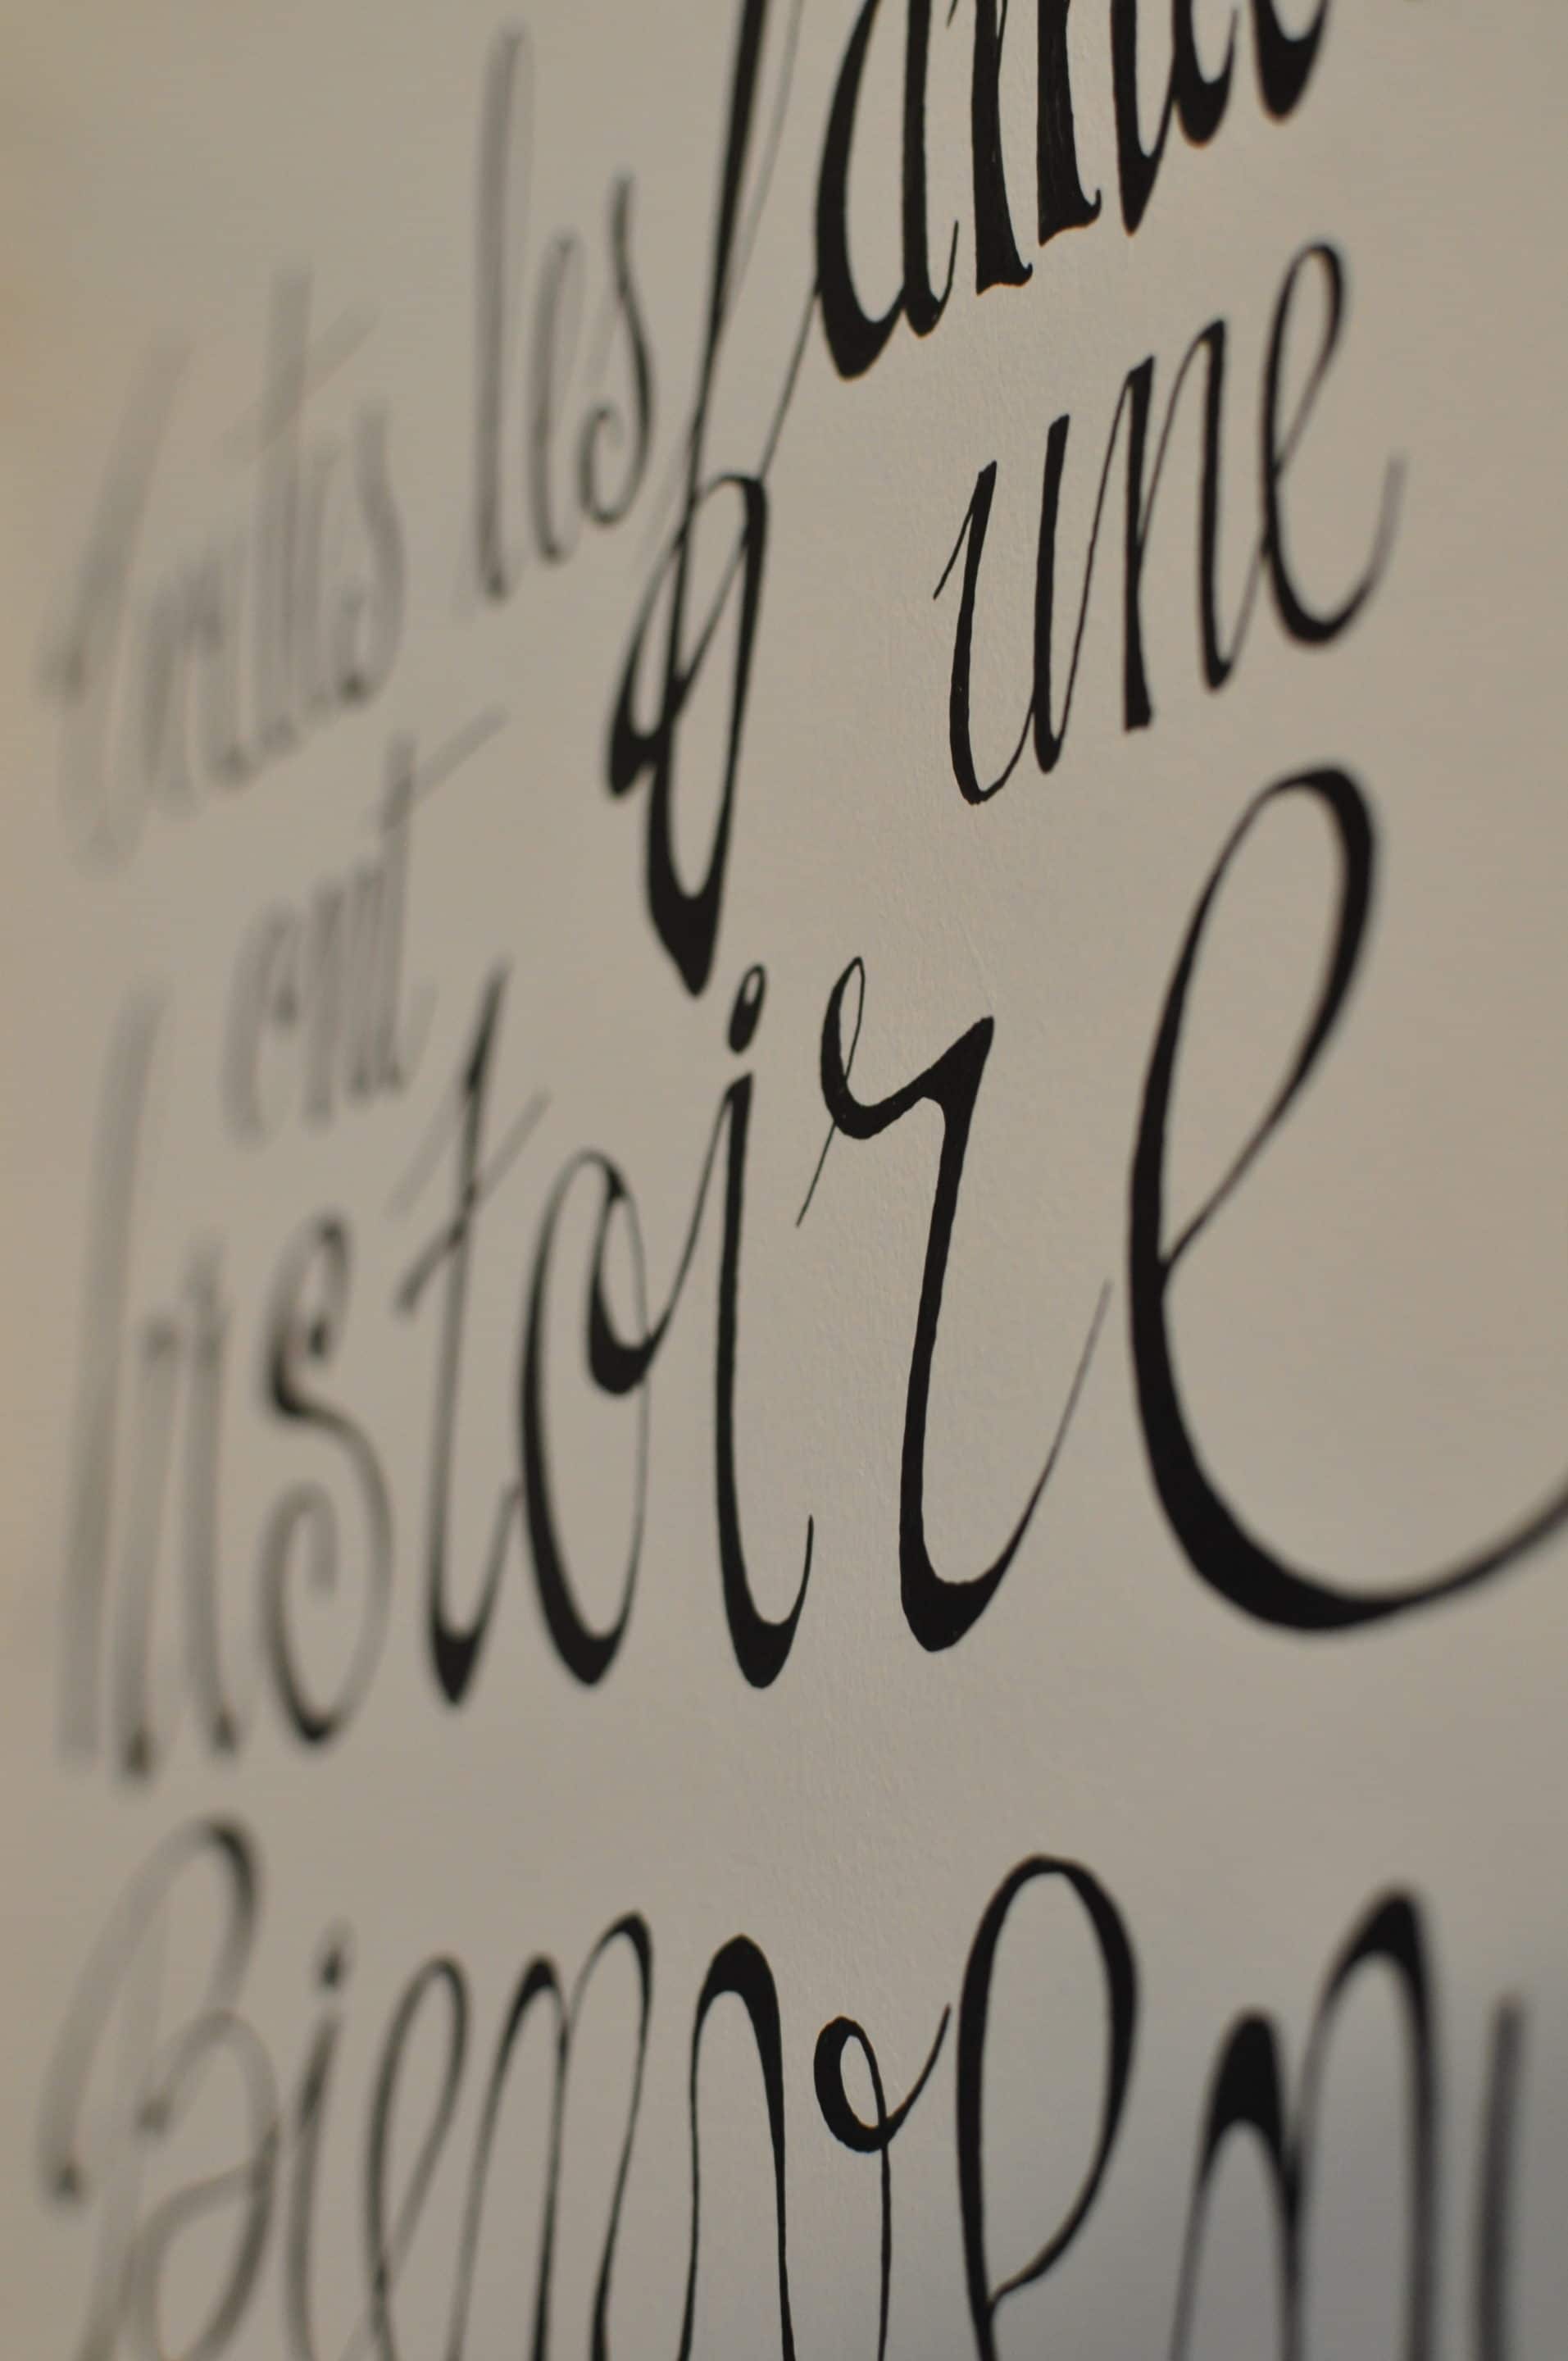 toutes les
ont une
histoire
Bienvenu